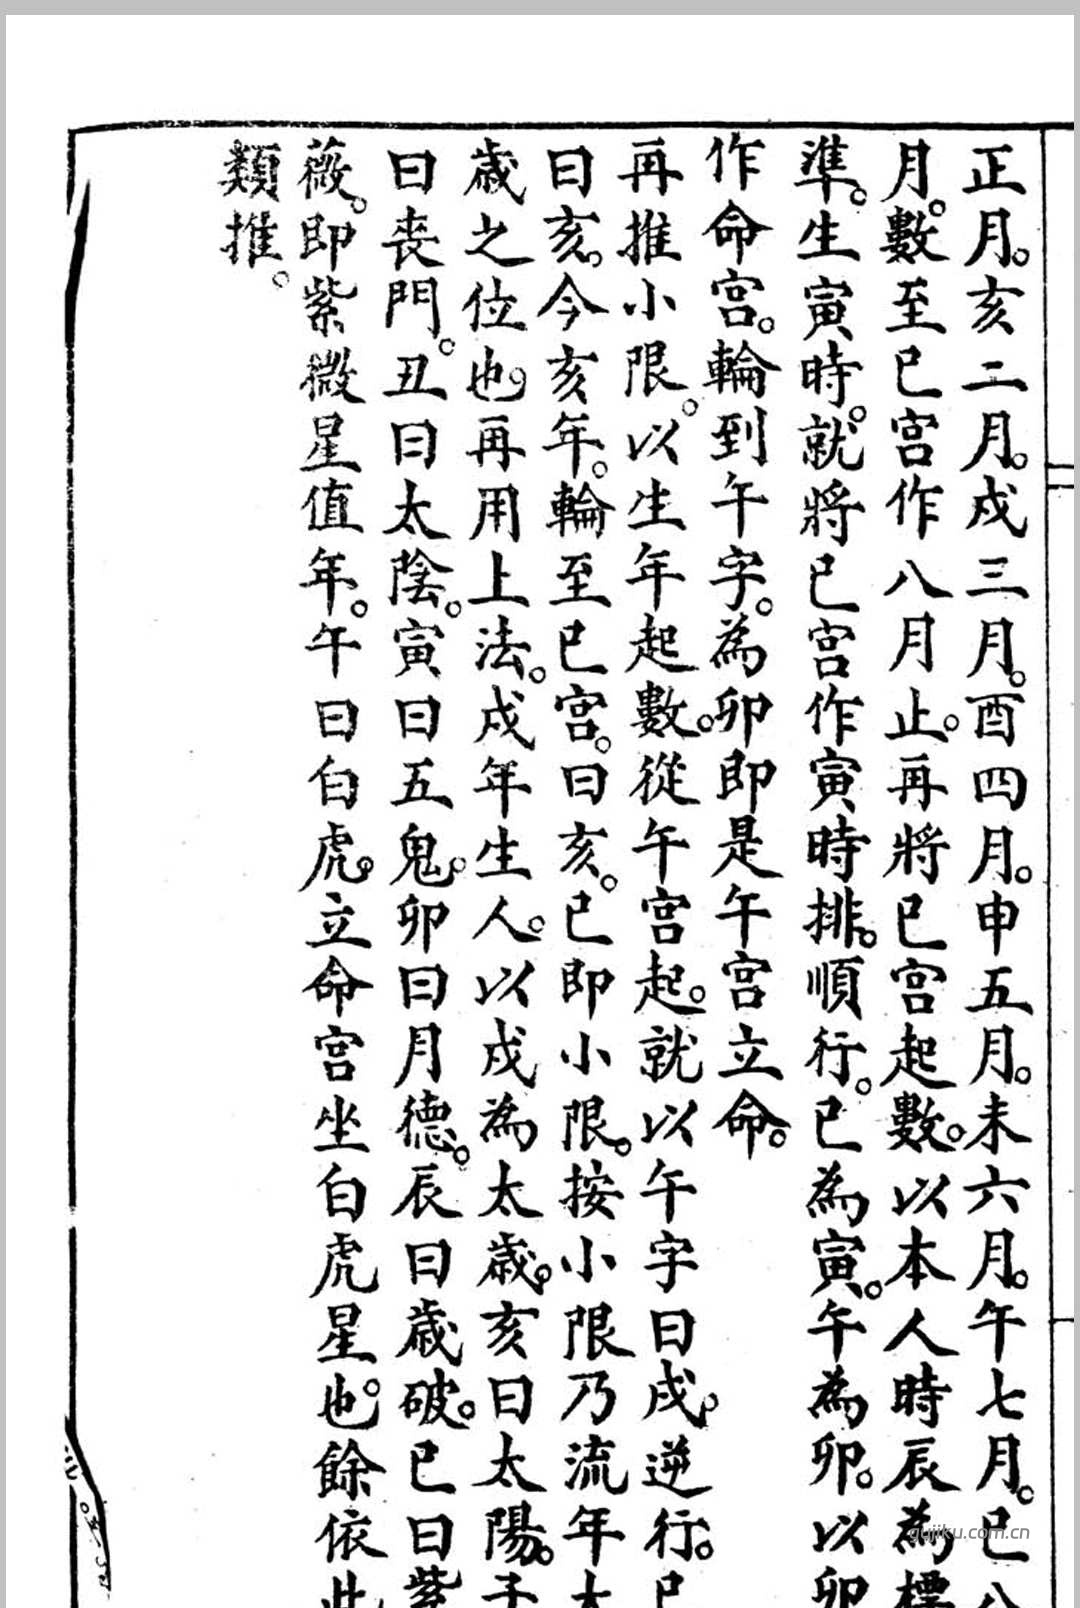 正月。亥二月。戌三月。酉四月。申五月。未六月。午七月。巳八
月。數至巳宮作八月止。再將巳宮起數。以本人時辰為標
準。生寅時。就將巳宮作寅時排。順行。巳為寅。午為卯。以卯
作命宮。輪到午字。為卯即是午宮立命。
再推小限。以生年起數。從午宮起。就以午字曰戌。逆行。巳
曰亥。今亥年。輪至巳宮。曰亥。巳即小限。按小限乃流年太
歲之位也。再用上法。戌年生人。以戌為太歲。亥曰太陽。子
曰喪門。丑曰太陰。寅曰五鬼。卯曰月德。辰曰歲破。巳曰紫
薇。即紫微星值年。午曰白虎。立命宮坐白虎星也。餘依此
類推。
gujiku.com.cn